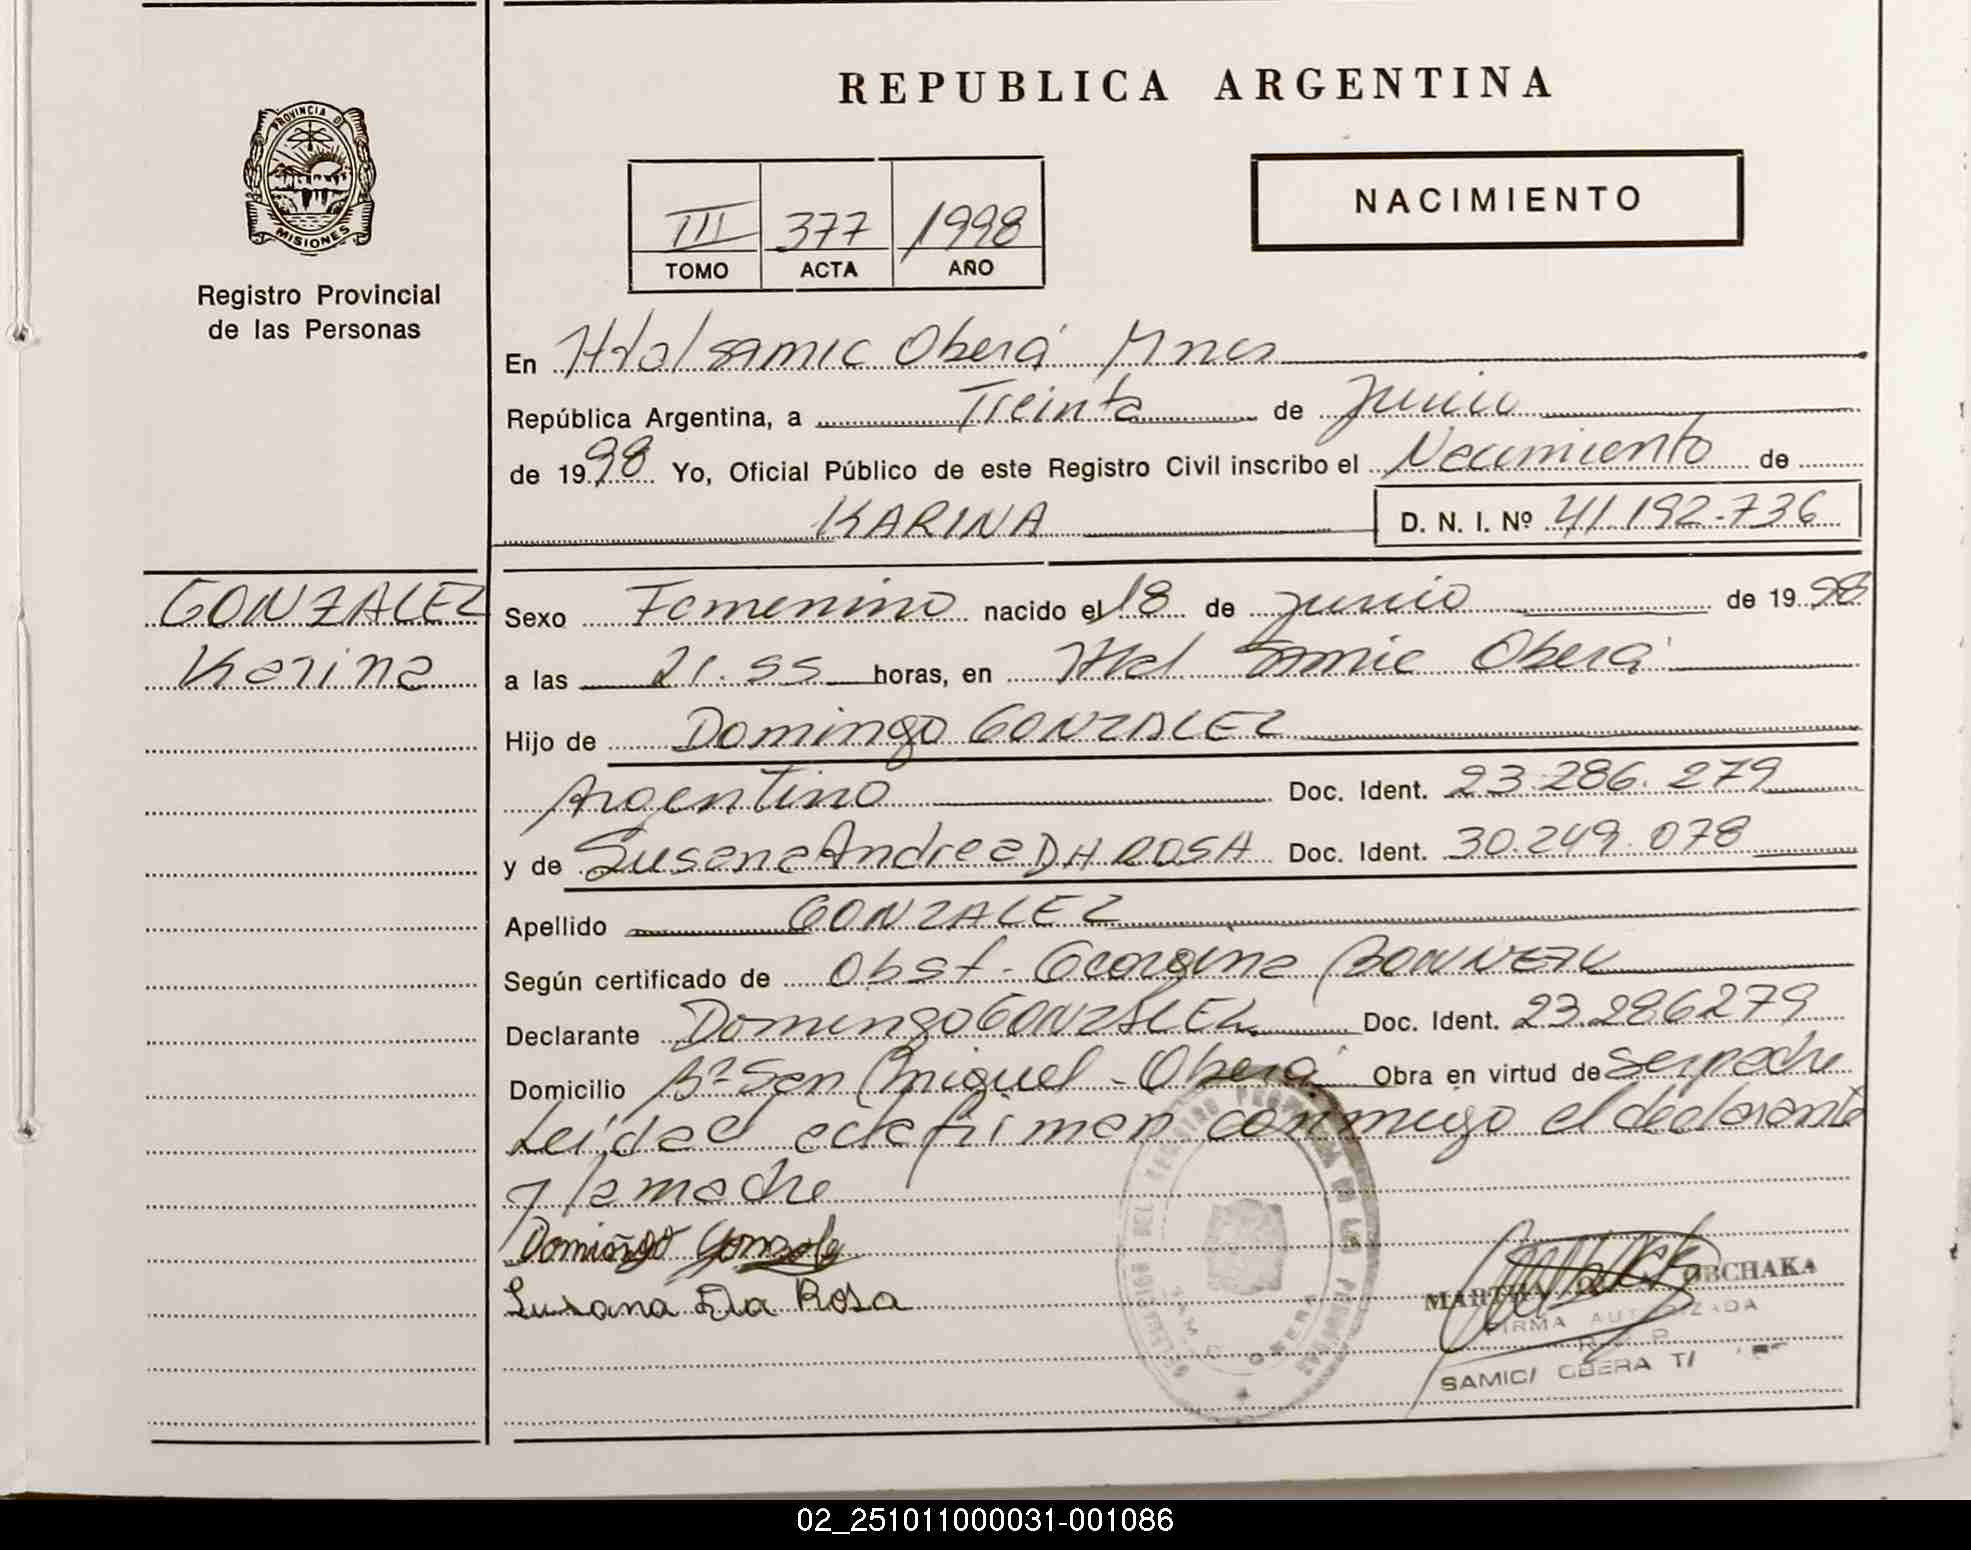 REPUBLICA ARGENTINA
PROVINCIA D
MISIONES
Registro Provincial
de las Personas
III 377 1998
TOMO ACTA AÑO
NACIMIENTO
En Hdal samic Oberá Mnes
República Argentina, a Treinta de junio
de 1998 Yo, Oficial Público de este Registro Civil inscribo el Nacimiento de
KARINA D. N. I. Nº 41.192.736
GONZALEZ
Karina
Sexo Femenino nacido el 18 de junio de 1998
a las 21.55 horas, en Hdal Samic Oberá
Hijo de Domingo GONZALEZ
Argentino Doc. Ident. 23.286.279
y de Susana Andrea DA ROSA Doc. Ident. 30.249.078
Apellido GONZALEZ
Según certificado de Obst. Georgina
Declarante Domingo GONZALEZ Doc. Ident. 23.286279
Domicilio Bº San Miguel - Oberá Obra en virtud de ser padre
Leída el acta firman conmigo el declarante
y la madre
Domingo Gonzale
Susana Da Rosa
MARTHA OBCHAKA
FIRMA AUTORIZADA
SAMIC/ OBERA
02_251011000031-001086